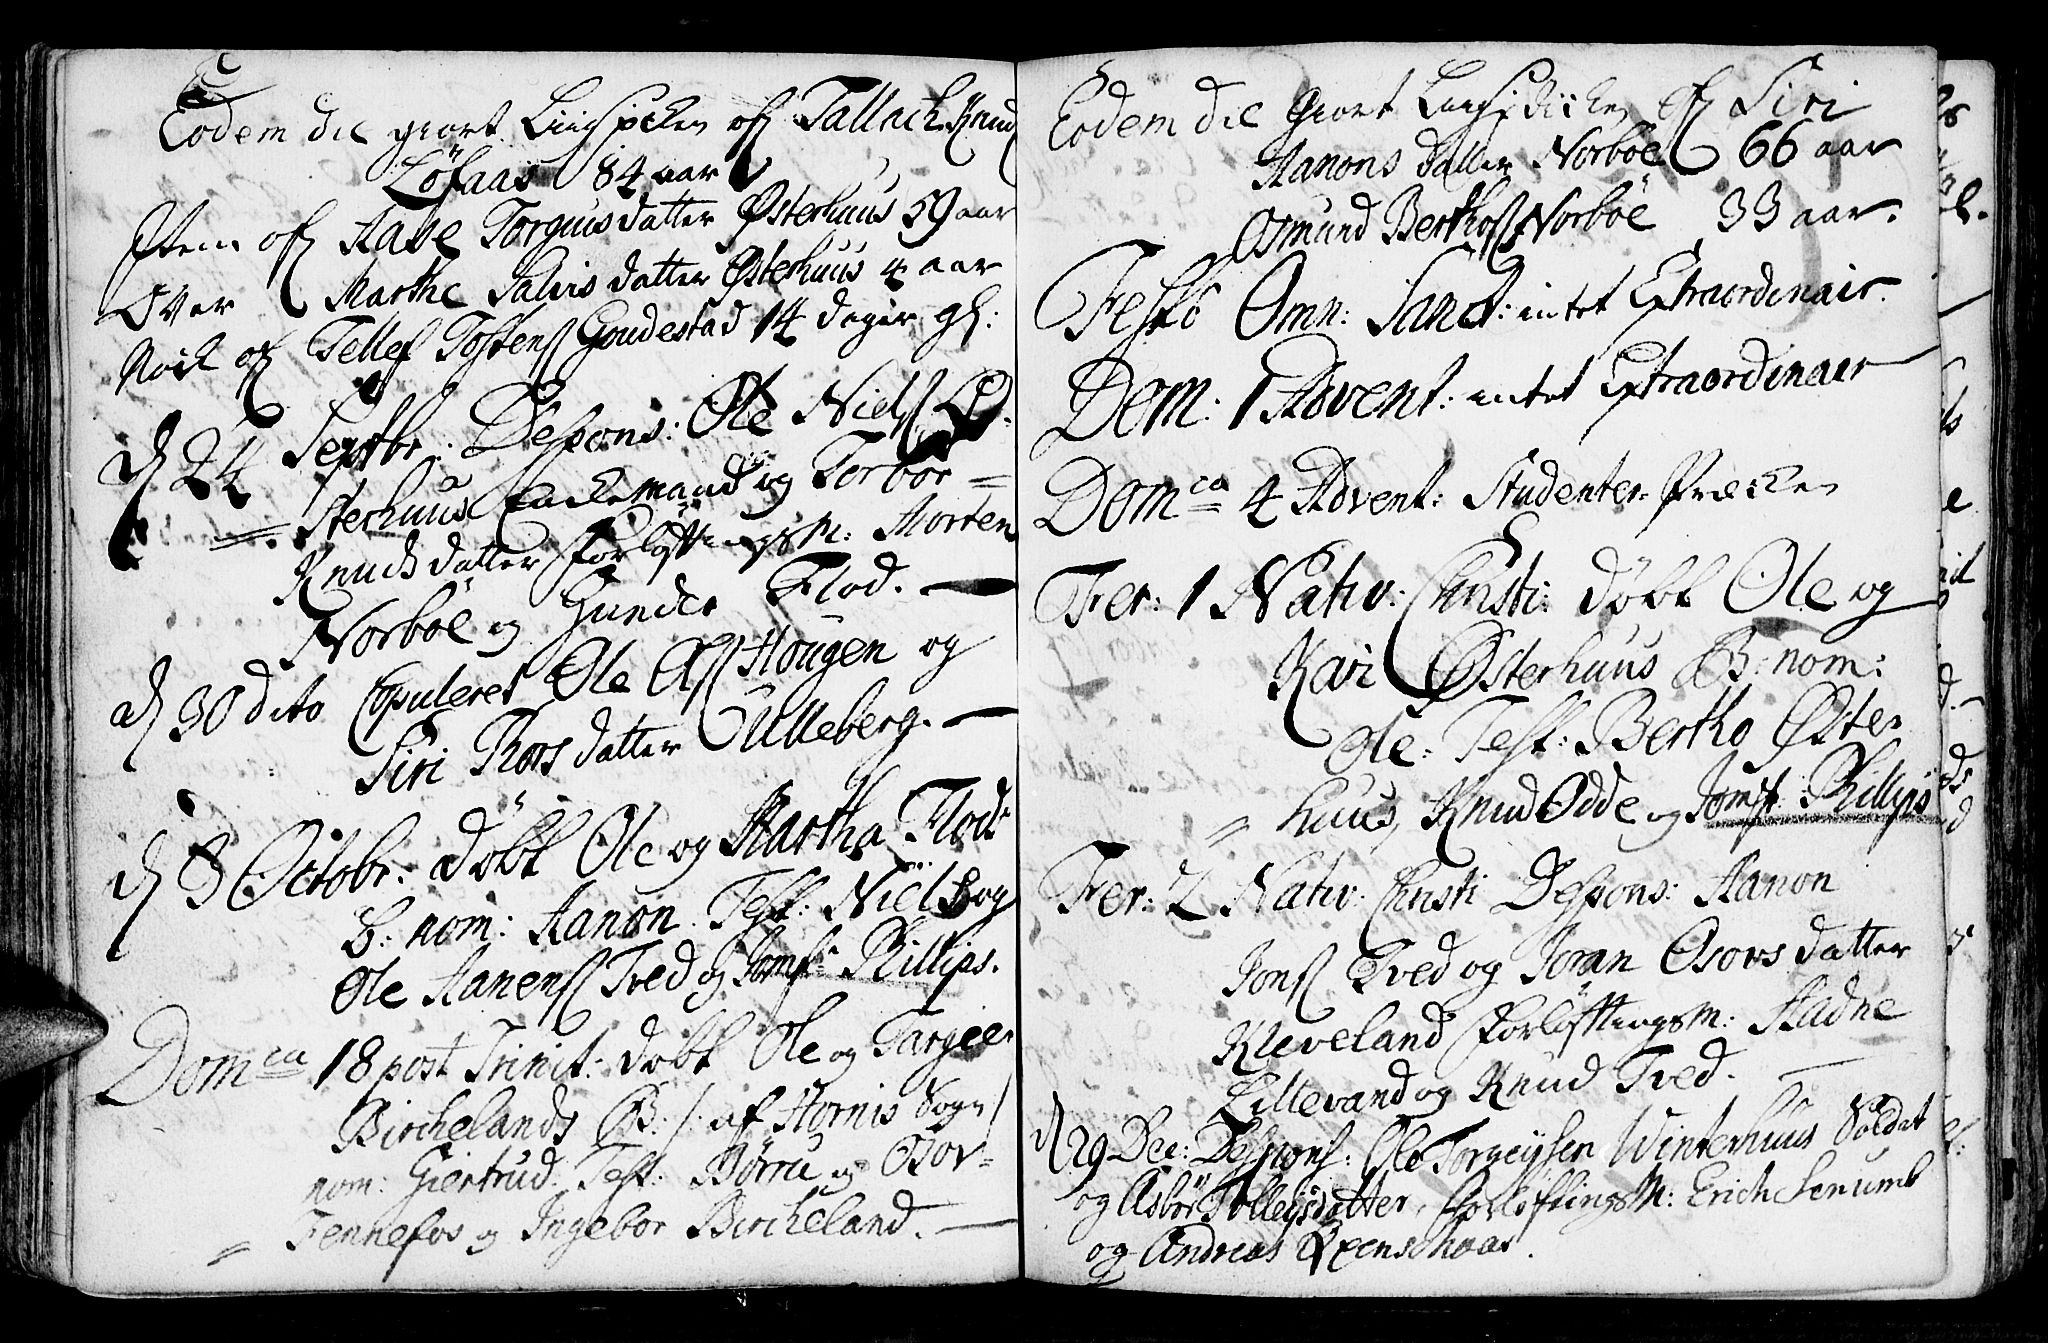 Eodem die giort Liigpreken ofr Tallach Knuds
Löfaas 84 aar
Item ofr Aase Torguusdatter Østerhuus 59 aar
Over Marthe Salvisdatter Østerhuus 4 aar
Nock ofr Tellef Tostens Goudestad 14 dager gl:
d 24 Septbr: Despons: Ole Niels Ø-
sterhuus Enckemand og Torbor =
Knudsdatter Forløftningsm: Morten
Norböe og Gunder Flod. —
d 30 dito Copuleret Ole Ols Hougen og
Siri Thorsdatter Ulleberg. —
d 3 Octobr: döbt Ole og Martha Flods
B: nom: Aanon Test: Niels og
Ole Aanens Tved og Jomfr: Phillips.
Domca 18 post Trinit: döbt Ole og Targier
Birchelands B: /: af Hornis Sogn /
nom: Giertrud. Test: Börru og Osor-
= Fennefos og Ingebor Bircheland. —
Eodem die Giort Liigpreken ofr Siri
Aanons datter Norböe 66 aar
Osmund Berthos Norböe 33 aar.
Festo Omn: Sanct: intet Extraordinair.
Dom: 1 Advent: intet Extraordinair
Domca 4 Advent: Studenter-Præcken
Fer: 1 Nativ: Christi: döbt Ole og
Kari Østerhuus B: nom:
Ole: Test: Bertho Øster
= huus, Knud Odde og Jomfr: Phillips
Fer: 2 Nativ: Christi Despons: Aanon
Jons Tved og Joran Osorsdatter
Kleveland Forløftningsm: Aadne
Lillevand og Knud Tved. —
d 29 Dec: Despons: Ole Torgeysen Winterhuus Soldat
og Asbör Tolleijsdatter, Forløftningsm: Erich Senumb
og Andreas